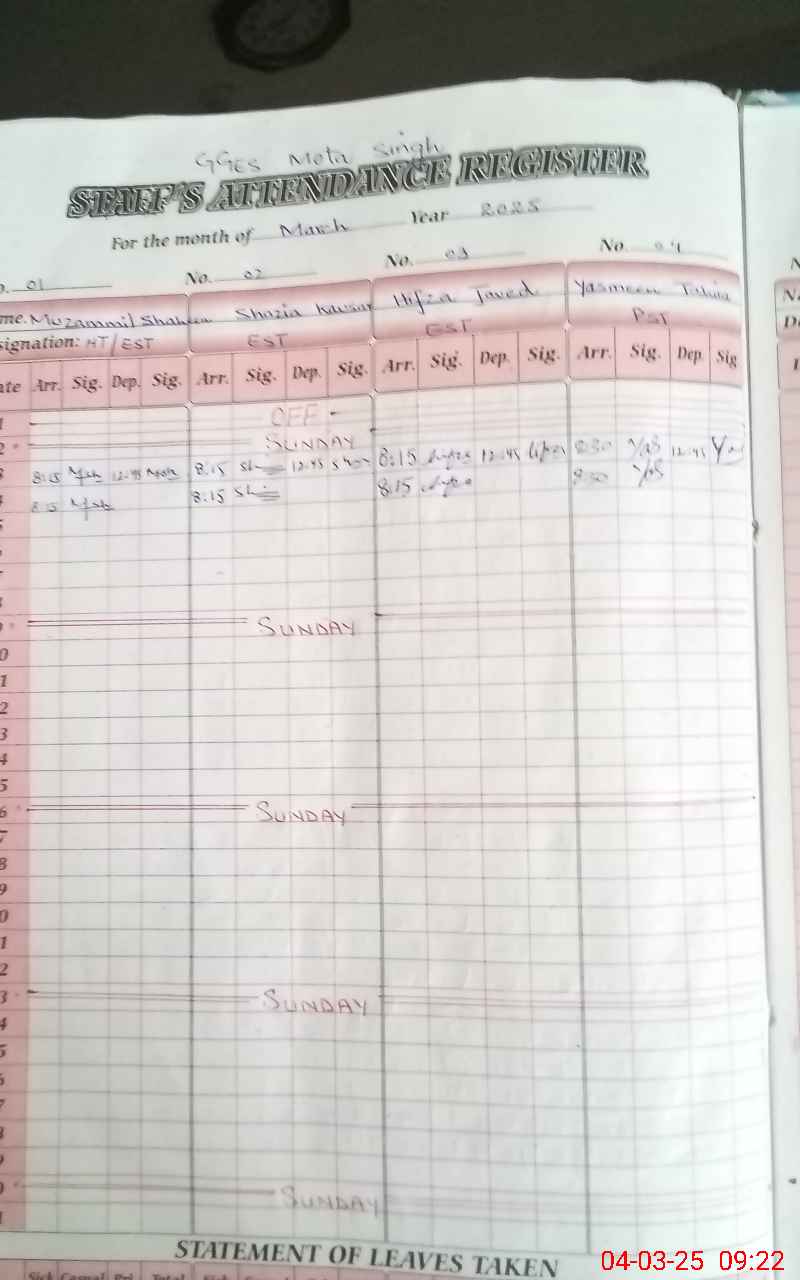 GGES Mota Singh
STAFF'S ATTENDANCE REGISTER
For the month of March Year 2025
01 No. 02 No. 03 No. 04
me. Muzammil Shaheen Shazia Kausar Hifza Javed Yasmeen Tahira
signation: HT/EST EST EST PST
ate Arr. Sig. Dep. Sig. Arr. Sig. Dep. Sig. Arr. Sig. Dep. Sig. Arr. Sig. Dep. Sig
1 OFF
2 SUNDAY
3 8:15 12:45 8:15 12:45 8:15 12:45 8:30 Yas 12:45
4 8:15 8:15 8:15 8:30 Yas
5
9 SUNDAY
0
1
2
3
4
5
6 SUNDAY
7
8
9
0
1
2
3 SUNDAY
4
5
6
7
8
9
0 SUNDAY
1
STATEMENT OF LEAVES TAKEN
Sick Casual Pri. Total
04-03-25 09:22